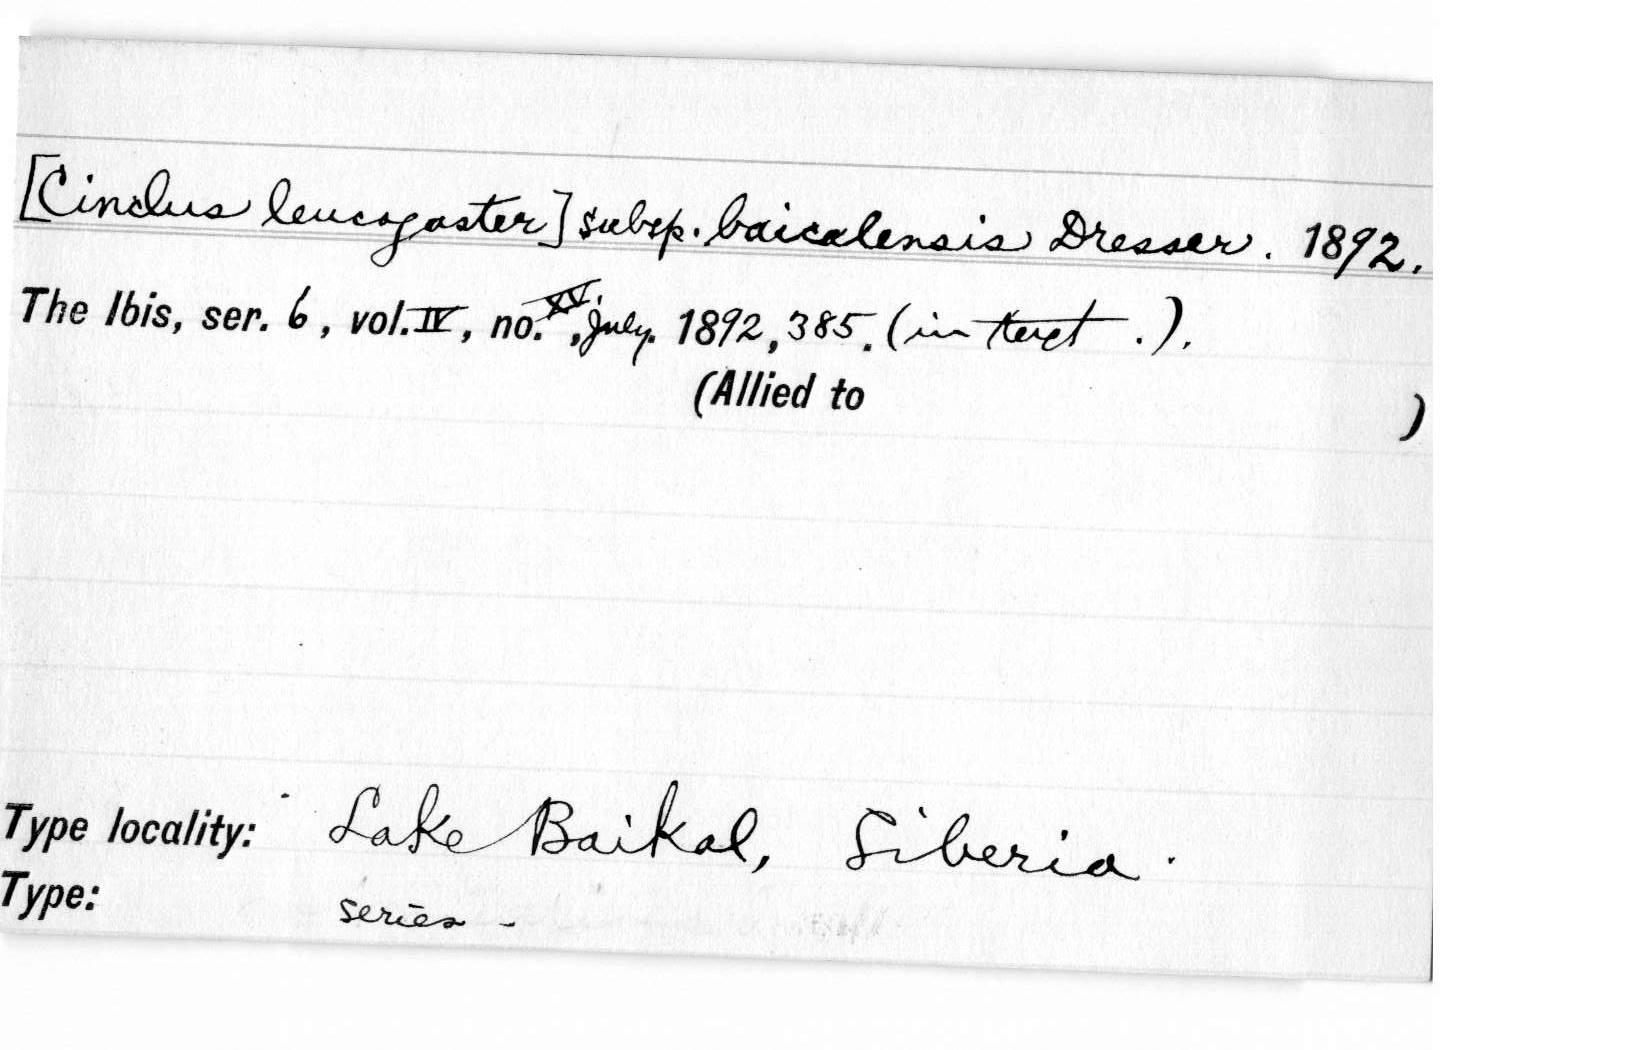 [Cinclus leucogaster] subsp. baicalensis Dresser. 1892.
The Ibis, ser. 6, vol. IV, no. XV., July. 1892, 385. (in text.).
(Allied to )
Type locality: Lake Baikal, Siberia.
Type: series -